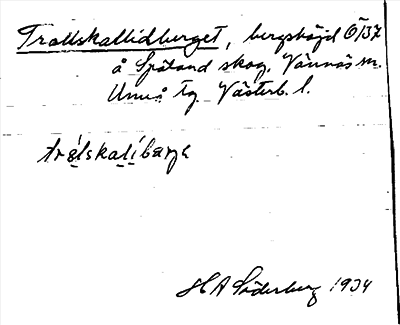 Trollskallidberget, bergshöjd 6/37
å Spöland skog, Vännäs sn.
Umeå tg. Västerb. l.
H A Söderberg 1934